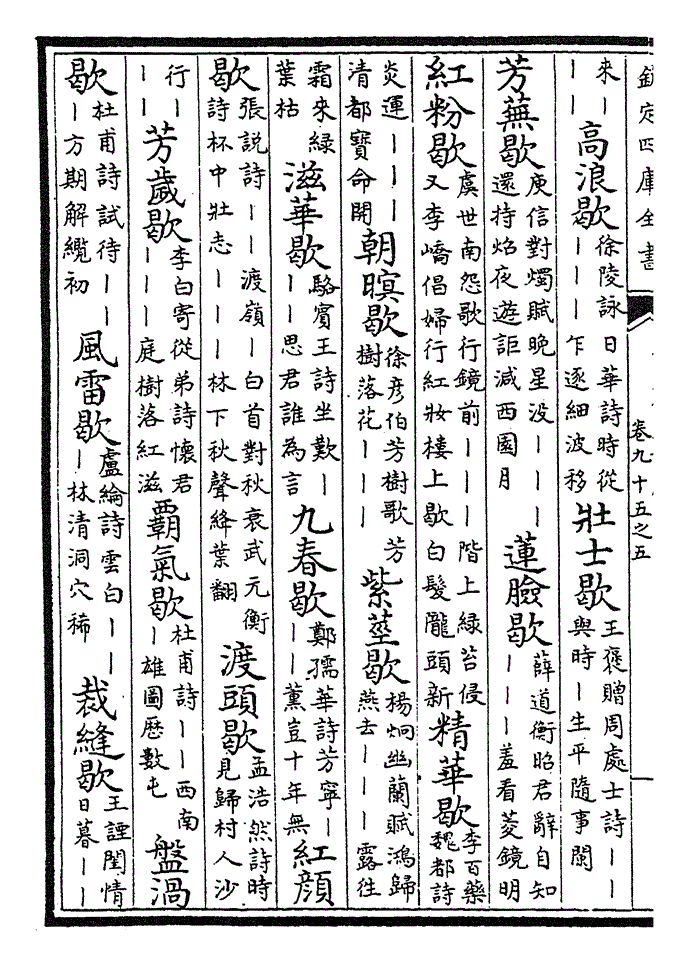 欽定四庫全書 卷九十五之五
來丨丨丨 高浪歇 徐陵詠日華詩時從丨丨丨乍逐細波移 壯士歇 王褒贈周處士詩丨丨與時丨生平隨事闌
芳蕪歇 庾信對燭賦晚星没丨丨丨還持焰夜遊詎減西園月 蓮臉歇 薛道衡昭君辭自知丨丨丨羞看菱鏡明
紅粉歇 虞世南怨歌行鏡前丨丨丨階上緑苔侵又李嶠倡婦行紅妝樓上歇白髮隴頭新 精華歇 李百藥魏都詩
炎運丨丨丨清都寶命開 朝暝歇 徐彦伯芳樹歌芳樹落花丨丨丨 紫莖歇 楊炯幽蘭賦鴻歸燕去丨丨丨露往
霜來緑葉枯 滋華歇 駱賓王詩坐歎丨丨丨思君誰為言 九春歇 鄭孺華詩芳寧丨丨丨薰豈十年無 紅顔
歇 張説詩丨丨渡嶺丨白首對秋衰武元衡詩杯中壯志丨丨丨林下秋聲絳葉翻 渡頭歇 孟浩然詩時見歸村人沙
行丨丨丨 芳歲歇 李白寄從弟詩懷君丨丨丨庭樹落紅滋 霸氣歇 杜甫詩丨丨西南丨雄圖歷數屯 盤渦
歇 杜甫詩試待丨丨丨方期解纜初 風雷歇 盧綸詩雲白丨丨丨林清洞穴稀 裁縫歇 王諲閨情日暮丨丨